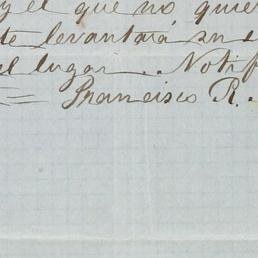 y el que no quie
te levantará su e
el lugar.. Notif
Francisco R.